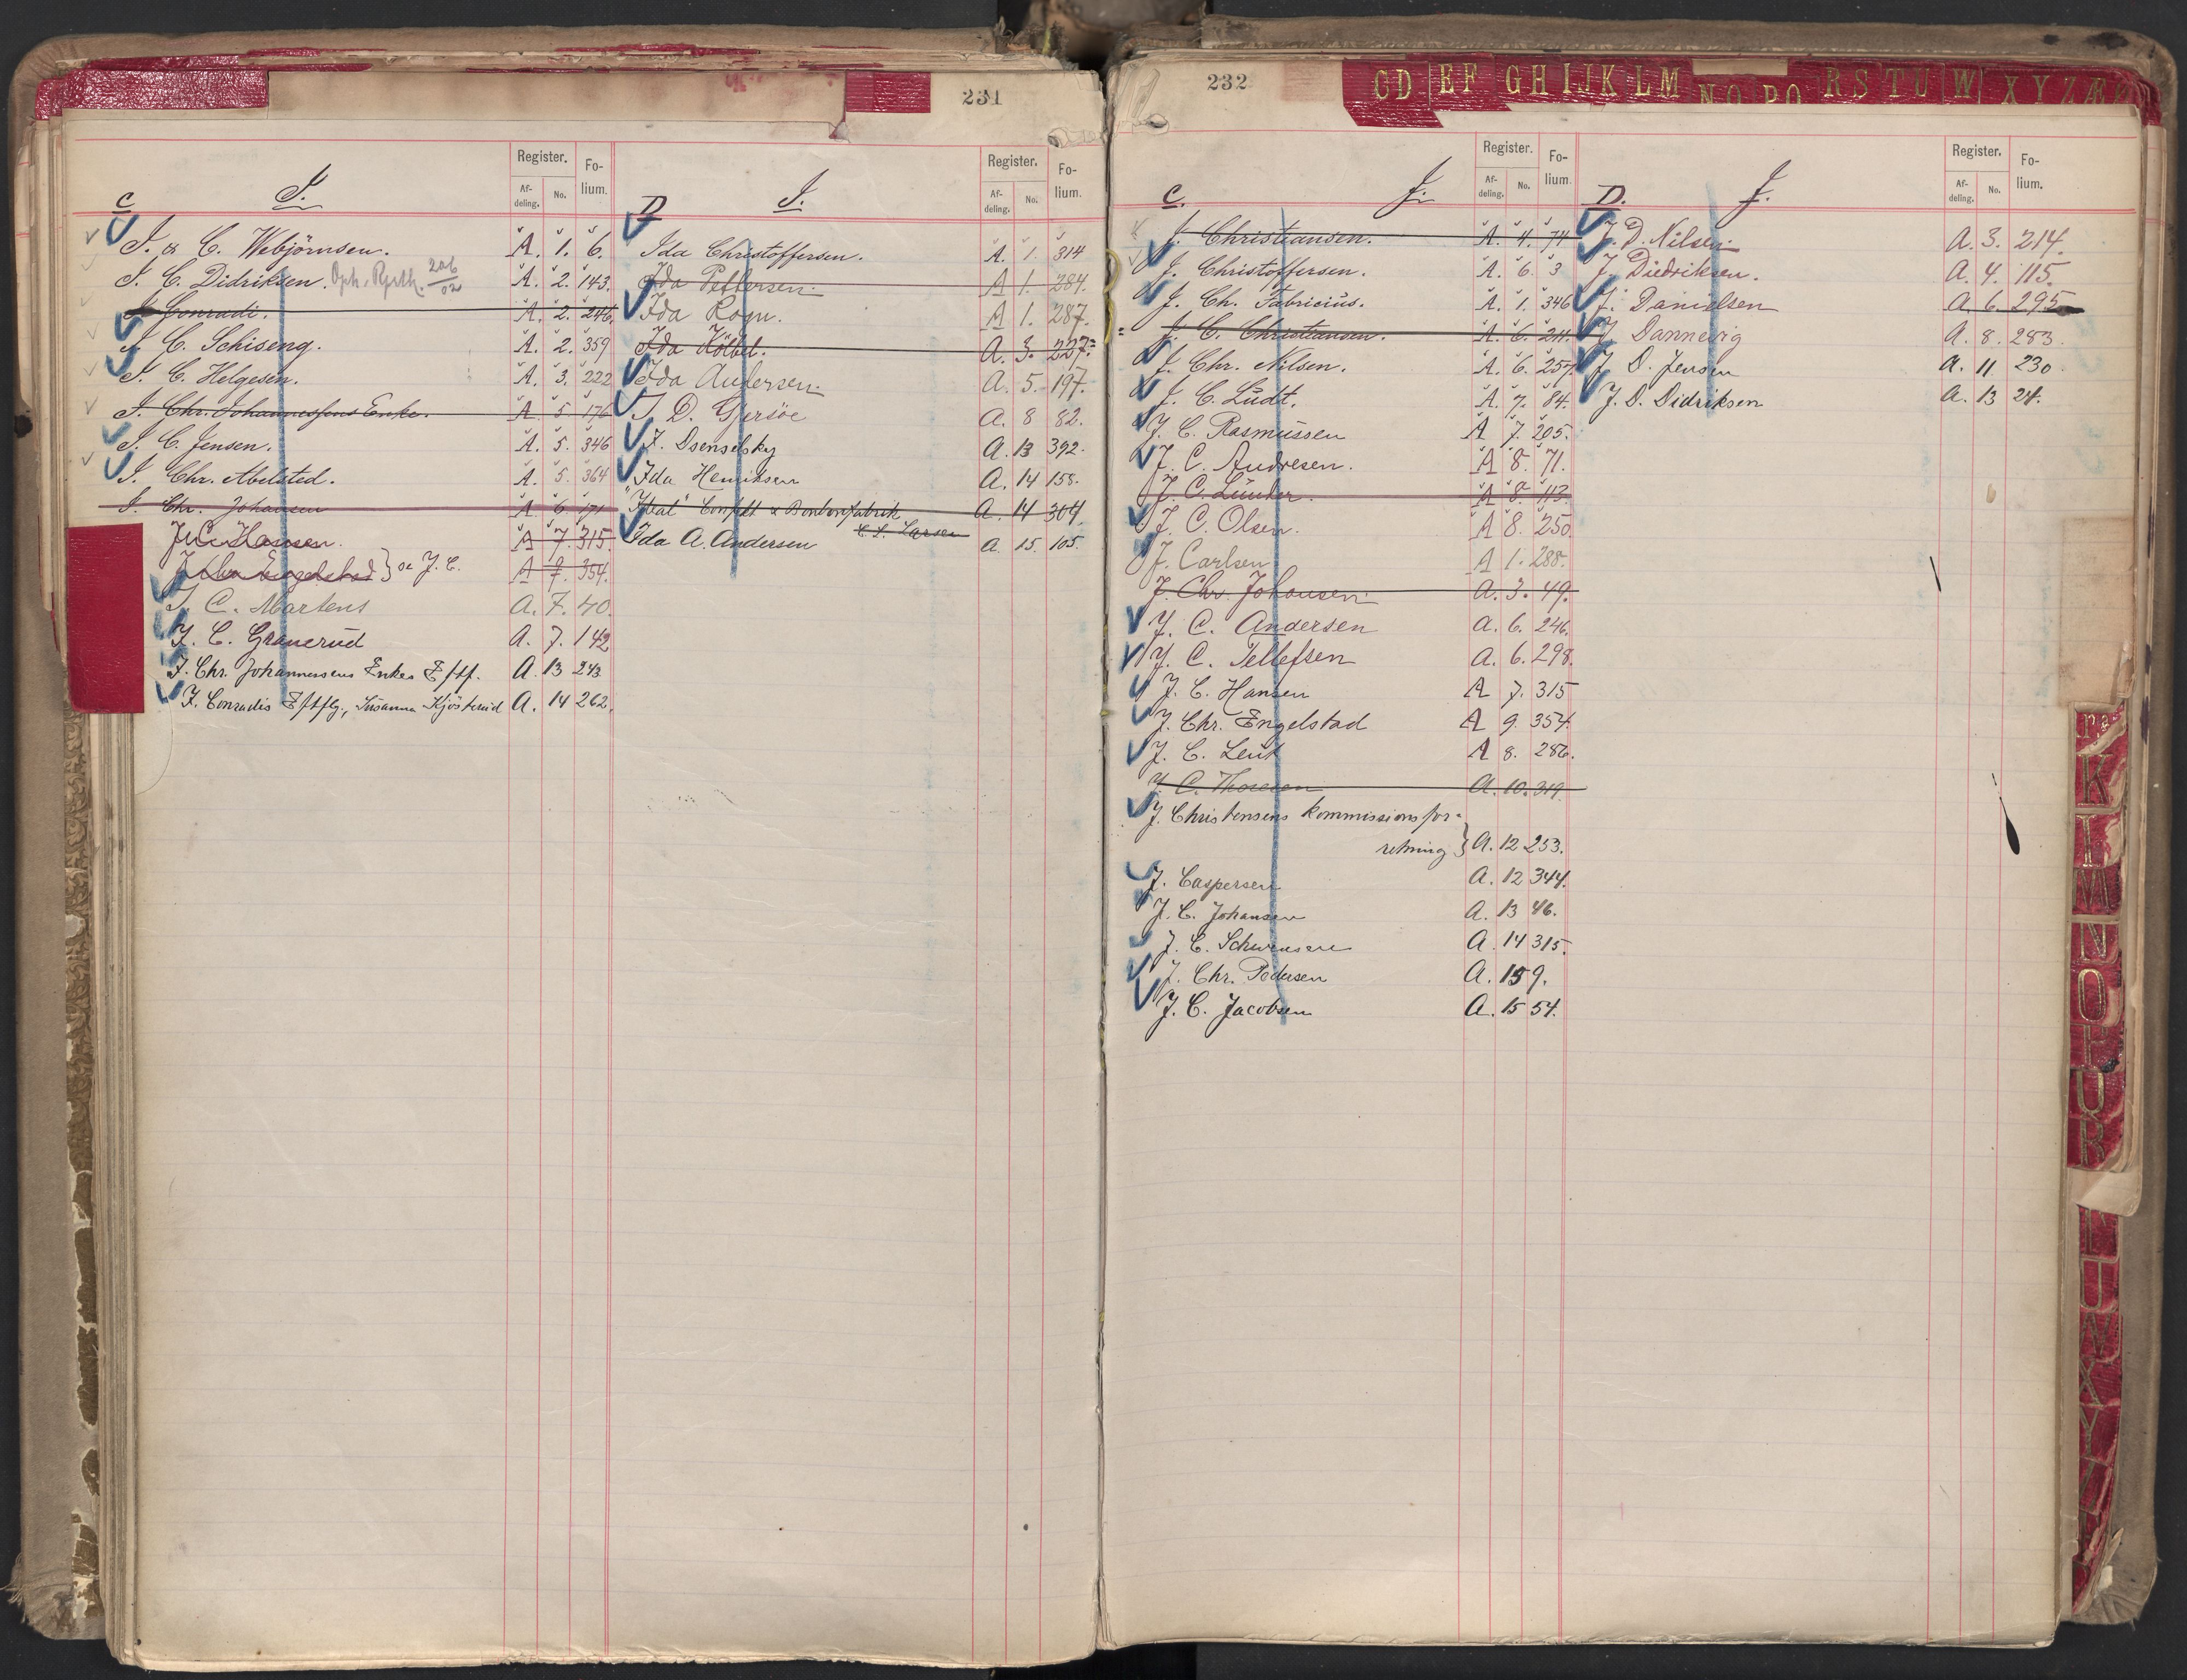 231
Register. Fo-
Af- No. lium.
deling.
C I.
I. & C. Webjörnsen. A. 1. 6.
I. C. Didriksen. Oph. 206/02 A. 2. 143.
I. Conradi. A. 2. 246.
I. C. Schiseng. A. 2. 359
I. C. Helgesen. A. 3. 222
I. Chr. Johannessens Enke. A. 5. 176
I. C. Jensen. A. 5. 346
I. Chr. Abelsted. A. 5. 364
I. Chr. Johansen A. 6. 171
J. C. Hansen. A 7. 315.
J. Chr. Engelstad } se J. C. A 9. 354.
I. C. Martens A. 7. 40
I. C. Granerud A. 7. 142
I. Chr. Johannessens Enkes Eftf. A. 13 243
I. Conradis Eftflg., Susanna Kjösterud A. 14 262.
Register. Fo-
Af- No. lium.
deling.
D I.
Ida Christoffersen. A. 1. 314
Ida Pettersen. A 1. 284.
Ida Rogn. A 1. 287.
Ida Kölbel. A. 3. 227.
Ida Andersen. A. 5. 197.
I. D. Gjersöe A. 8 82.
I. Dsenselsky A. 13 392.
Ida Henriksen A. 14 158.
"Ideal" Confekt & Bonbonfabrik A. 14 304.
C. L. Larsen
Ida A. Andersen A. 15. 105.
232
CD EF GH IJK LM NO PQ RS TU W XYZÆØ
Register. Fo-
Af- No. lium.
deling.
C. J.
J. Christiansen. A. 4. 74
J. Christoffersen. A. 6. 3
J. Ch. Fabricius. A. 1. 346
J. C. Christiansen. A. 6. 211.
J. Chr. Nilsen. A. 6. 257.
J. C. Lüdt. A. 7. 84.
J. C. Rasmussen A 7. 205.
J. C. Andresen. A 8. 71.
J. C. Lunder. A 8. 113.
J. C. Olsen. A 8. 250.
J. Carlsen A 1. 288.
J. Chr. Johansen. A. 3. 49.
J. C. Andersen A. 6. 246.
J. C. Tellefsen A. 6. 298.
J. C. Hansen A 7. 315
J. Chr. Engelstad A 9. 354.
J. C. Leuk A 8. 286.
J. C. Thoresen A. 10. 319.
J. Christensens Kommissionsfor-
retning } A. 12 253.
J. Caspersen A. 12 344.
J. C. Johansen A. 13 46.
J. C. Schwensen A. 14 315.
J. Chr. Pedersen A. 15 9.
J. C. Jacobsen A. 15 54.
Register. Fo-
Af- No. lium.
deling.
D. J.
J. D. Nilsen. A. 3. 214.
J. Diedriksen. A. 4. 115.
J. Danielsen A. 6. 295
J. Dannevig A. 8. 283.
J. D. Jensen A. 11 230
J. D. Didriksen A. 13 24.